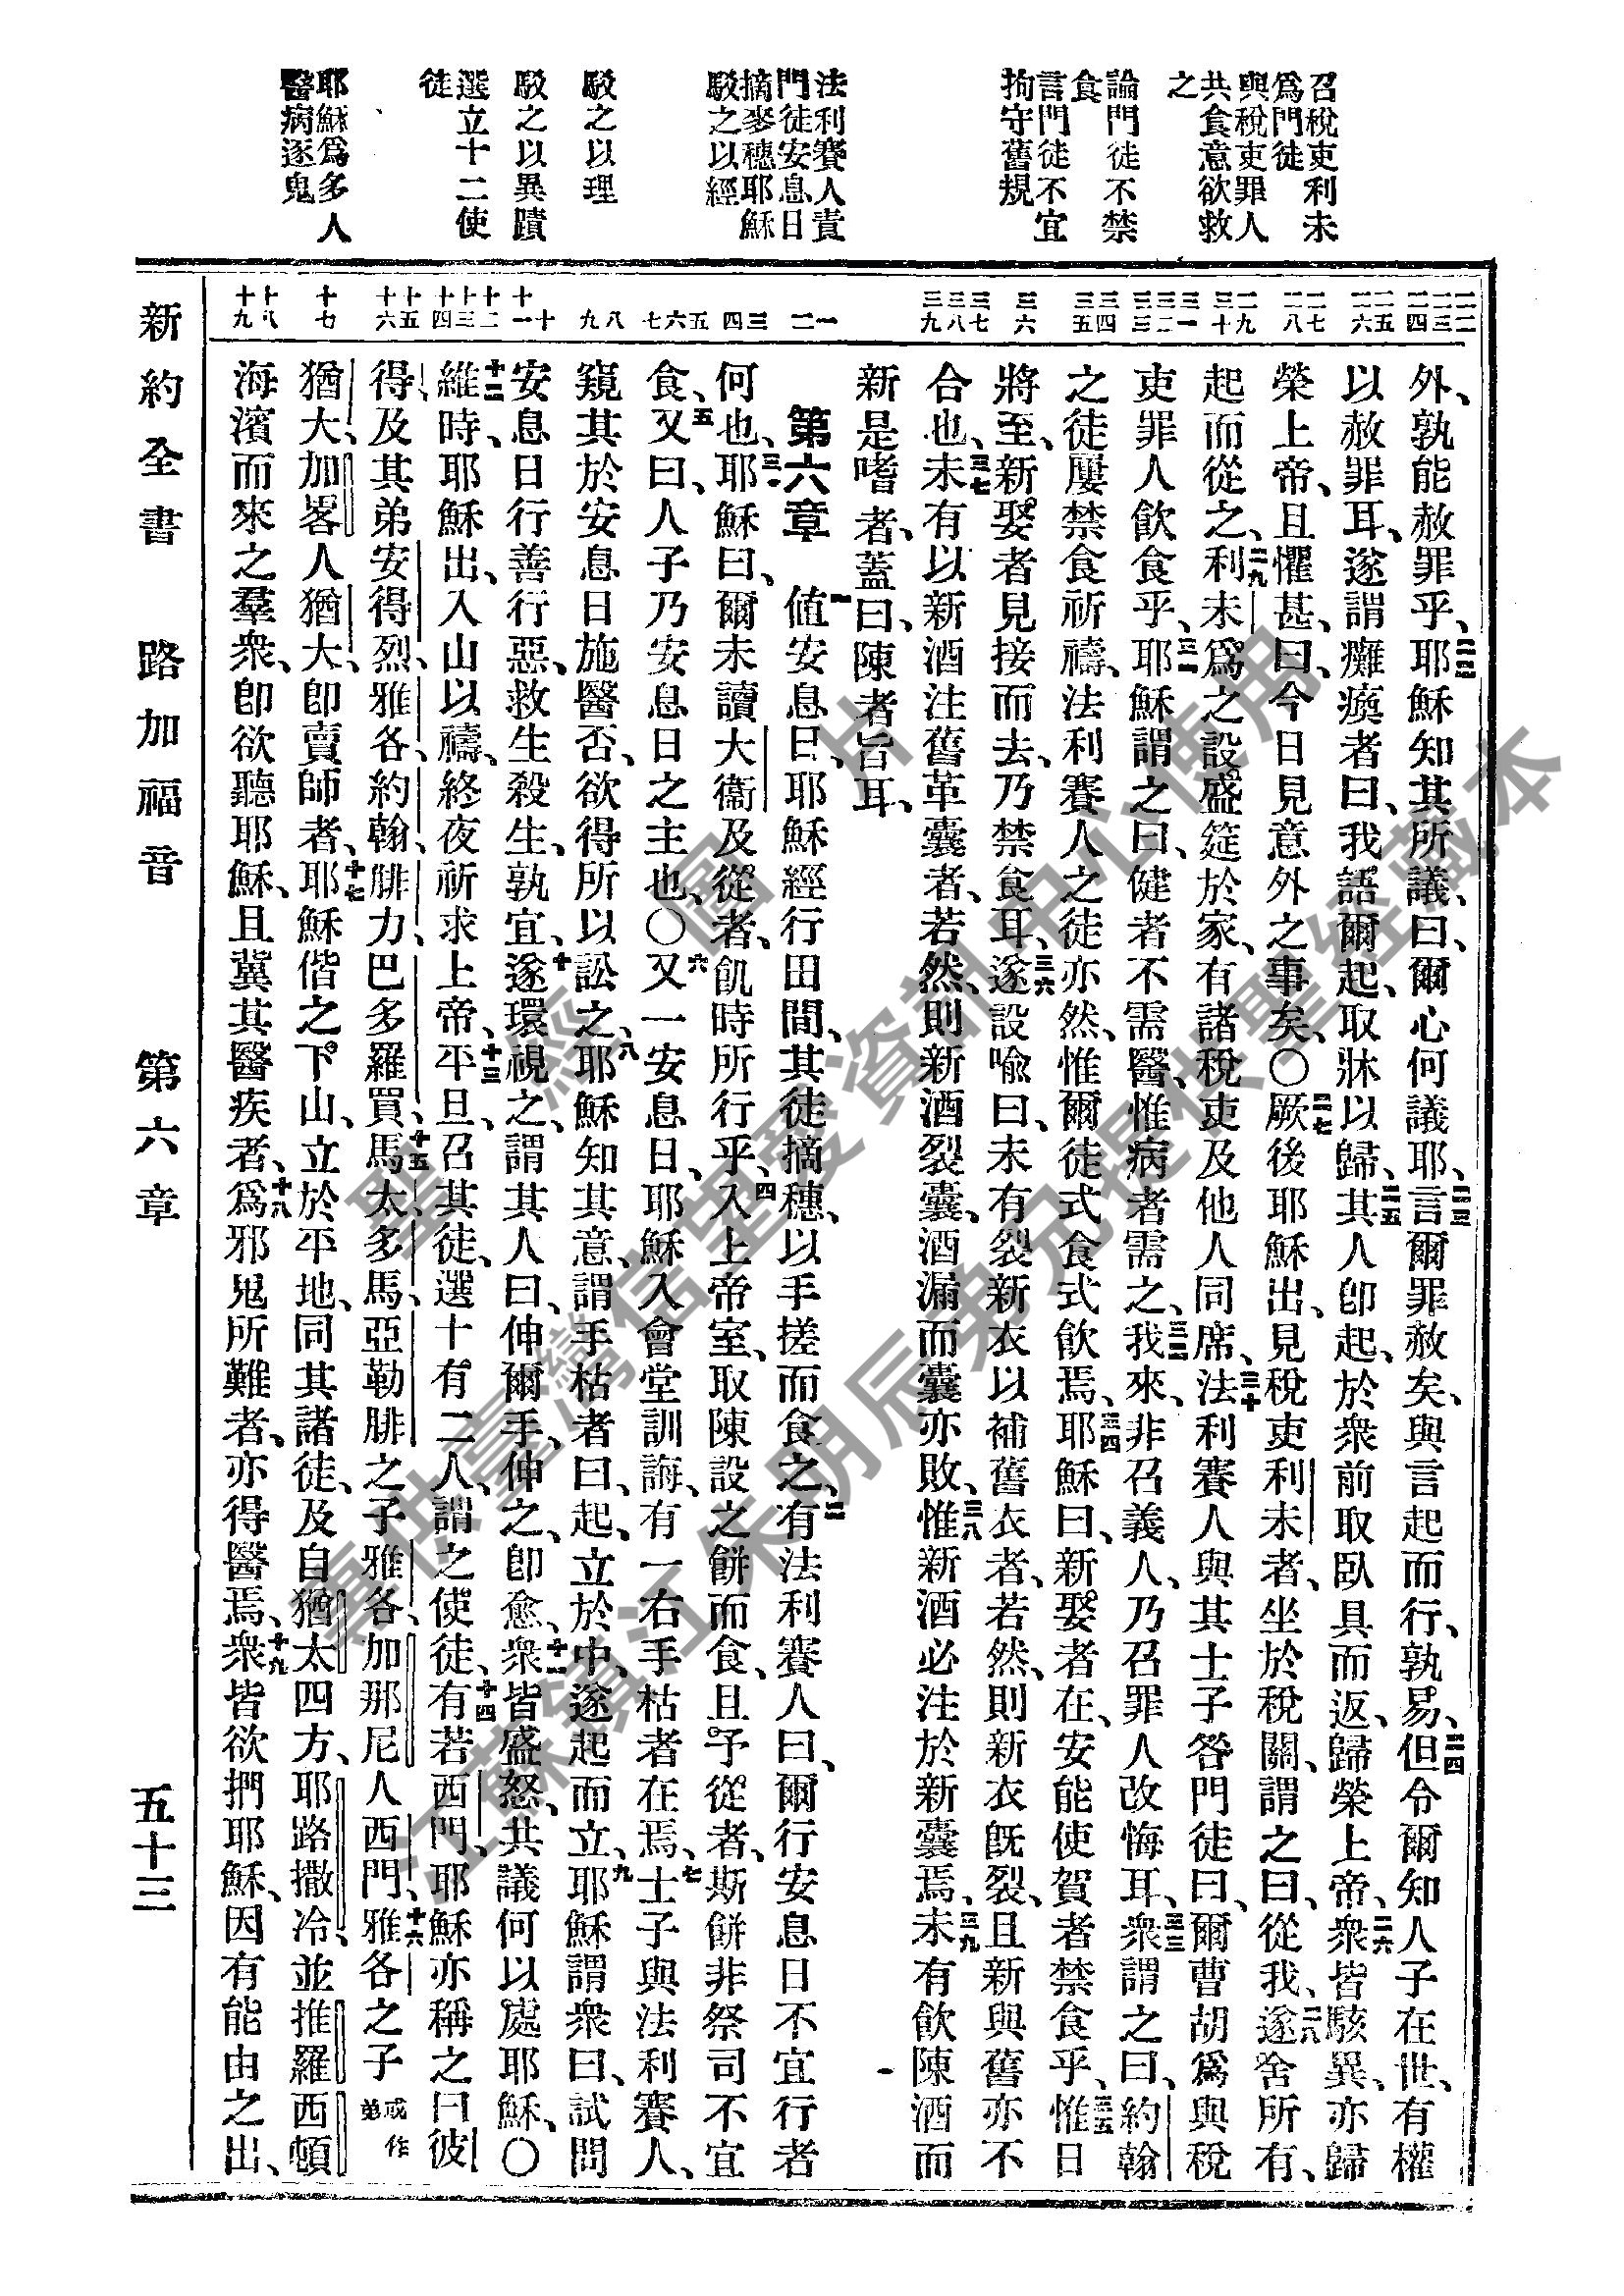 召稅吏利未
爲門徒
與稅吏罪人
共食意欲救
之
論門徒不禁
食
言門徒不宜
拘守舊規
法利賽人責
門徒安息日
摘麥穗耶穌
駁之以經
駁之以理
駁之以異蹟
選立十二使
徒
耶穌爲多人
醫病逐鬼
二二 二三 二四
二五 二六
二七 二八
二九 三十
三一 三二 三三
三四 三五
三六
三七 三八 三九
一 二
三 四
五 六 七
八 九
十 十一
十二 十三 十四
十五 十六
十七
十八 十九
外、孰能赦罪乎、二二耶穌知其所議、曰、爾心何議耶、二三言爾罪赦矣、與言起而行、孰易、二四但令爾知人子在世、有權
以赦罪耳、遂謂癱瘓者曰、我語爾起、取牀以歸、二五其人卽起、於衆前取臥具而返、歸榮上帝、二六衆皆駭異、亦歸
榮上帝、且懼甚、曰、今日見意外之事矣、〇二七厥後耶穌出、見稅吏利未者、坐於稅關、謂之曰、從我、二八遂舍所有、
起而從之、二九利未爲之設盛筵於家、有諸稅吏及他人同席、三十法利賽人與其士子咎門徒曰、爾曹胡爲與稅
吏罪人飲食乎、三一耶穌謂之曰、健者不需醫、惟病者需之、三二我來、非召義人、乃召罪人改悔耳、三三衆謂之曰、約翰
之徒屢禁食祈禱、法利賽人之徒亦然、惟爾徒式食式飲焉、三四耶穌曰、新娶者在、安能使賀者禁食乎、三五惟日
將至、新娶者見接而去、乃禁食耳、三六遂設喻曰、未有裂新衣以補舊衣者、若然、則新衣旣裂、且新與舊亦不
合也、三七未有以新酒注舊革囊者、若然、則新酒裂囊、酒漏而囊亦敗、三八惟新酒必注於新囊焉、三九未有飲陳酒而
新是嗜者、蓋曰、陳者旨耳、
第六章 一値安息日、耶穌經行田間、其徒摘穗、以手搓而食之、二有法利賽人曰、爾行安息日不宜行者
何也、三耶穌曰、爾未讀大衞及從者、飢時所行乎、四入上帝室、取陳設之餅而食、且予從者、斯餅非祭司不宜
食、五又曰、人子乃安息日之主也、〇六又一安息日、耶穌入會堂訓誨、有一右手枯者在焉、七士子與法利賽人、
窺其於安息日施醫否、欲得所以訟之、八耶穌知其意、謂手枯者曰、起、立於中、遂起而立、九耶穌謂衆曰、試問
安息日行善行惡、救生殺生、孰宜、十遂環視之、謂其人曰、伸爾手、伸之、卽愈、十一衆皆盛怒、共議何以處耶穌、〇
十二維時、耶穌出、入山以禱、終夜祈求上帝、十三平旦、召其徒、選十有二人、謂之使徒、十四有若西門、耶穌亦稱之曰彼
得、及其弟安得烈、雅各、約翰、腓力、巴多羅買、十五馬太、多馬、亞勒腓之子雅各、加那尼人西門、十六雅各之子或作弟
猶大、加畧人猶大、卽賣師者、十七耶穌偕之下山、立於平地、同其諸徒、及自猶太四方、耶路撒冷、並推羅西頓
海濱而來之羣衆、卽欲聽耶穌、且冀其醫疾者、十八爲邪鬼所難者、亦得醫焉、十九衆皆欲捫耶穌、因有能由之出、
新約全書 路加福音 第六章 五十三
聖經圖片
專供臺灣信望愛資訊中心使用
江蘇鎮江朱明辰弟兄提供聖經藏本